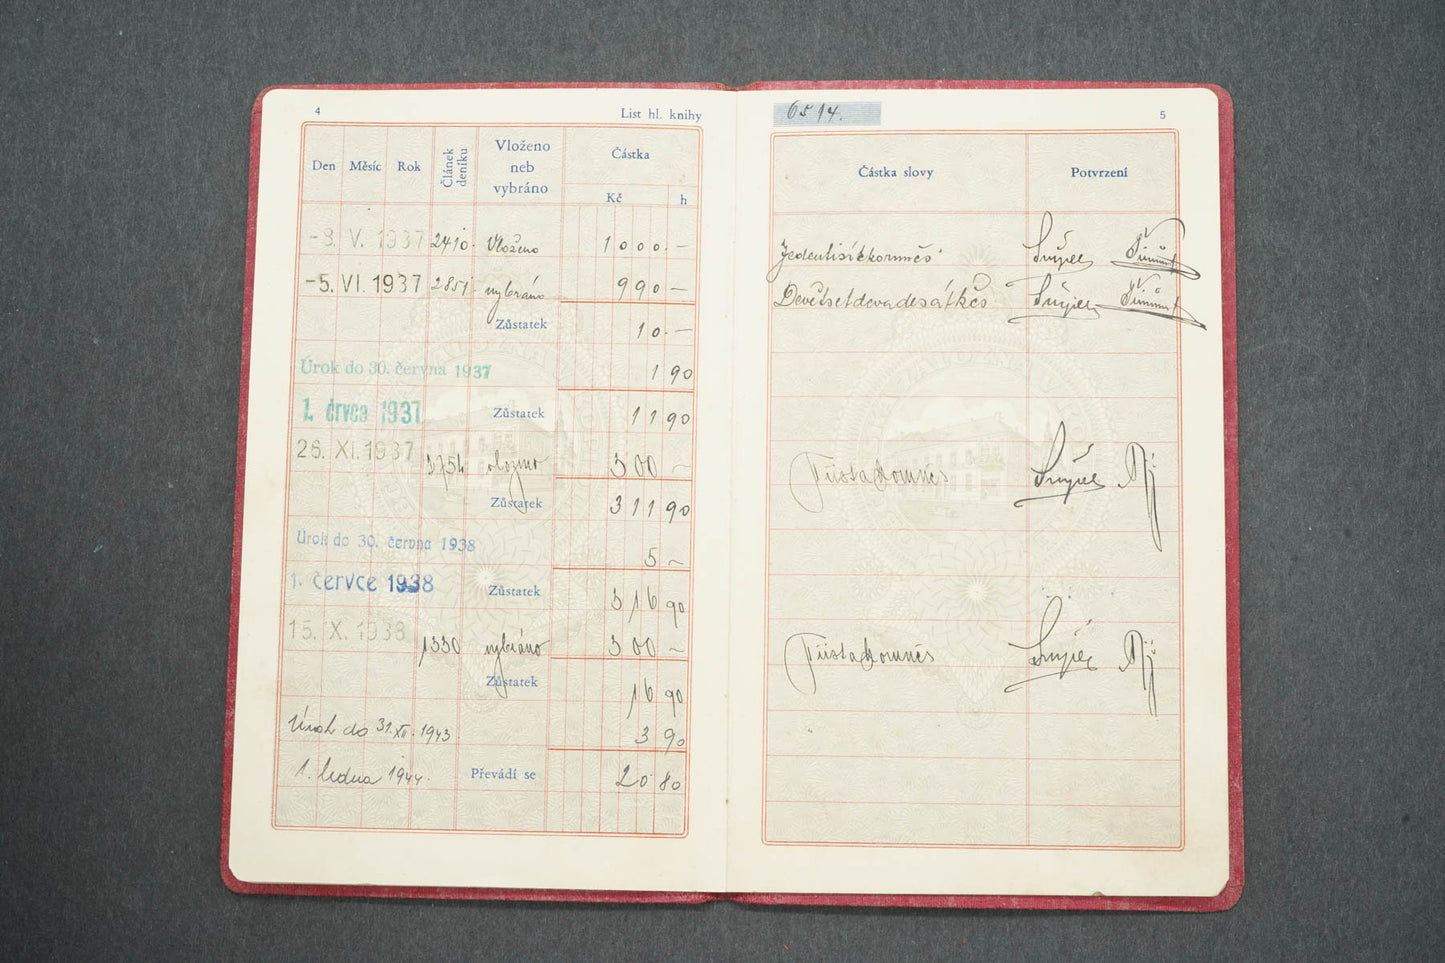 4
List hl. knihy
Den Měsíc Rok Článek deníku Vloženo neb vybráno Částka
Kč h
-3. V. 1937 2410. Vloženo 1000.—
-5. VI. 1937 2851. vybráno 990—
Zůstatek 10.—
Úrok do 30. června 1937 1 90
1. črvce 1937 Zůstatek 11 90
26. XI. 1937 3754 vloženo 300 —
Zůstatek 311 90
Úrok do 30. června 1938 5 —
1. červce 1938 Zůstatek 316 90
15. X. 1938 1330 vybráno 300 —
Zůstatek 16 90
Úrok do 31. XII. 1943 3 90
1. ledna 1944. Převádí se 20 80
6514.
5
Částka slovy Potvrzení
Jedentisíckorunčs
Devětsetdevadesátkčs
Třistakorunčs
Třistakorunčs